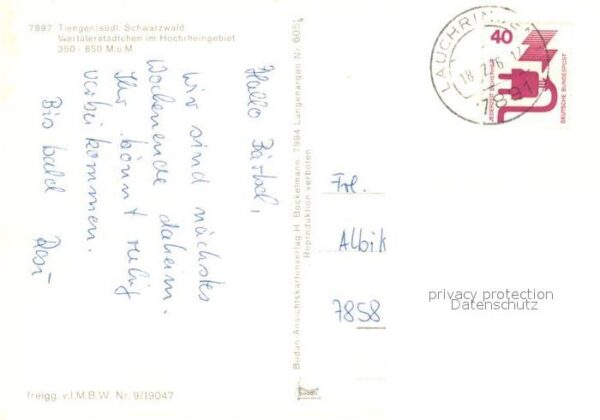 7897 Tiengen/südl. Schwarzwald
Viertälerstädtchen im Hochrheingebiet
350 - 650 M ü.M
Hallo Bärbel,
Wir sind nächstes
Wochenende daheim.
Ihr könnt ruhig
vorbeikommen.
Bis bald
Bodan-Ansichtskartenverlag H. Bockelmann, 7994 Langenargen Nr. 605
Reproduktion verboten
LAUCHRINGEN
18.2.76
7891
40
JEDERZEIT SICHERHEIT
DEUTSCHE BUNDESPOST
Frl.
Albik
7858
privacy protection
Datenschutz
freigg. v. I.M.B.W. Nr. 9/19047